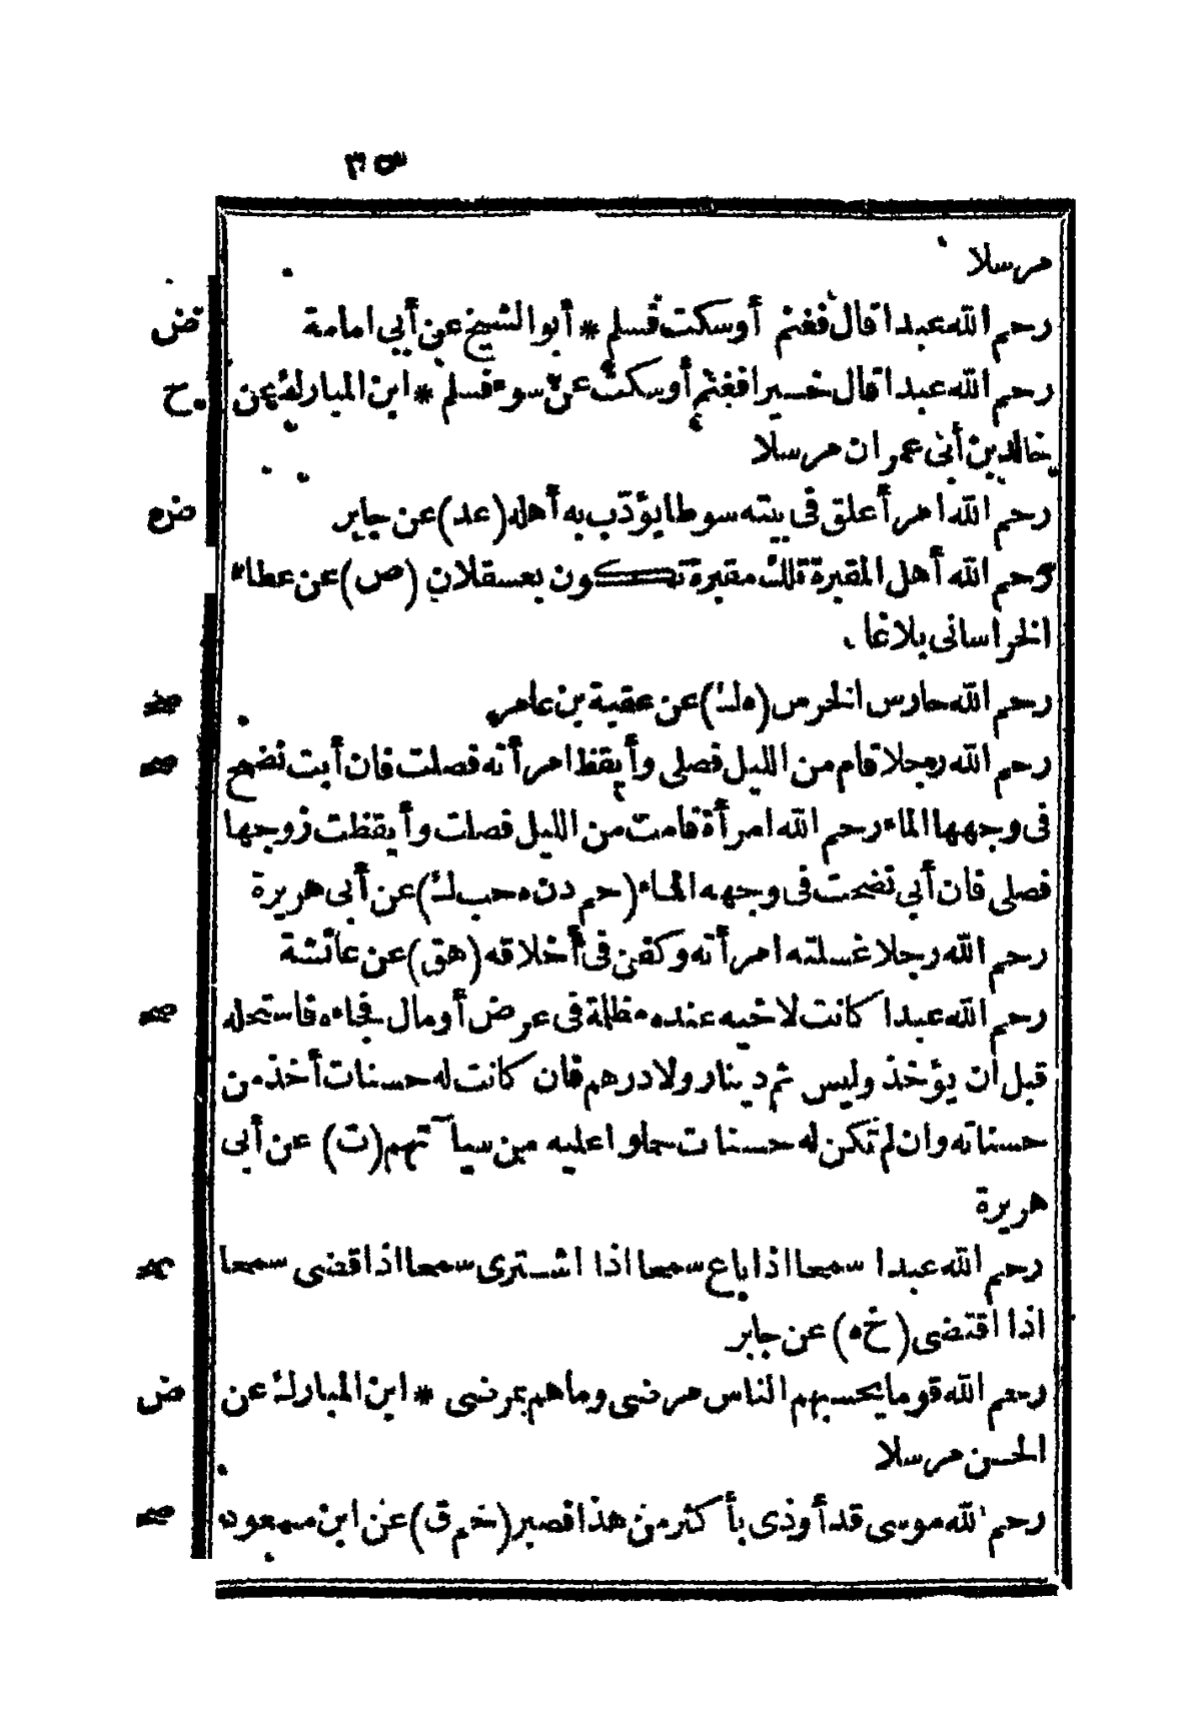 ٣٥
مرسلا
رحم الله عبدا قال فغنم أو سكت فسلم * أبو الشيخ عن أبي امامة ض
رحم الله عبدا قال خيرا فغنم أو سكت عن سوء فسلم * ابن المبارك عن ح
خالد بن أبى عمران مرسلا
رحم الله امرأ علق فى بيته سوطا يؤدّب به أهله (عد) عن جابر ضع
رحم الله أهل المقبرة تلك مقبرة تكون بعسقلان (ص) عن عطاء
الخراسانى بلاغا
رحم الله حارس الحرس (ه ك) عن عقبة بن عامر صح
رحم الله رجلا قام من الليل فصلى وأيقظ امرأته فصلت فان أبت نضح صح
فى وجهها الماء رحم الله امرأة قامت من الليل فصلت وأيقظت زوجها
فصلى فان أبي نضحت فى وجهه الماء (حم د ن ه حب ك) عن أبى هريرة
رحم الله رجلا غسلته امرأته وكفن فى أخلاقه (هق) عن عائشة
رحم الله عبدا كانت لاخيه عنده مظلمة فى عرض أو مال فجاءه فاستحله صح
قبل أن يؤخذ وليس ثم دينار ولا درهم فان كانت له حسنات أخذ من
حسناته وان لم تكن له حسنات حملوا عليه من سيآتهم (ت) عن أبى
هريرة
رحم الله عبدا سمحا اذا باع سمحا اذا اشترى سمحا اذا قضى سمحا صح
اذا اقتضى (خ ه) عن جابر
رحم الله قوما يحسبهم الناس مرضى وما هم بمرضى * ابن المبارك عن ض
الحسن مرسلا
رحم الله موسى قد أوذى بأكثر من هذا فصبر (حم ق) عن ابن مسعود صح